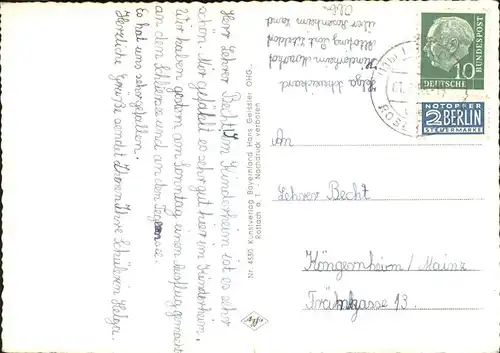 Herr Lehrer Becht! Im Kinderheim ist es sehr
schön. Mir gefällt es sehr gut hier im Kinderheim.
Wir haben gestern am Sonntag einen Ausflug gemacht
an den Schliersee und an den Tegernsee.
Es hat uns sehr gefallen.
Herzliche Grüße sendet Ihnen Ihre Schülerin Helga.
Helga
Kinderheim
über Rosenheim Land
Nr. 4530 Kunstverlag Bayernland Hans Geissler OHG.,
Rottach a. T. - Nachdruck verboten
Agfa
DEUTSCHE
BUNDESPOST
10
NOTOPFER
2 BERLIN
STEUERMARKE
An
Lehrer Becht
Köngernheim / Mainz
Tränkgasse 13.